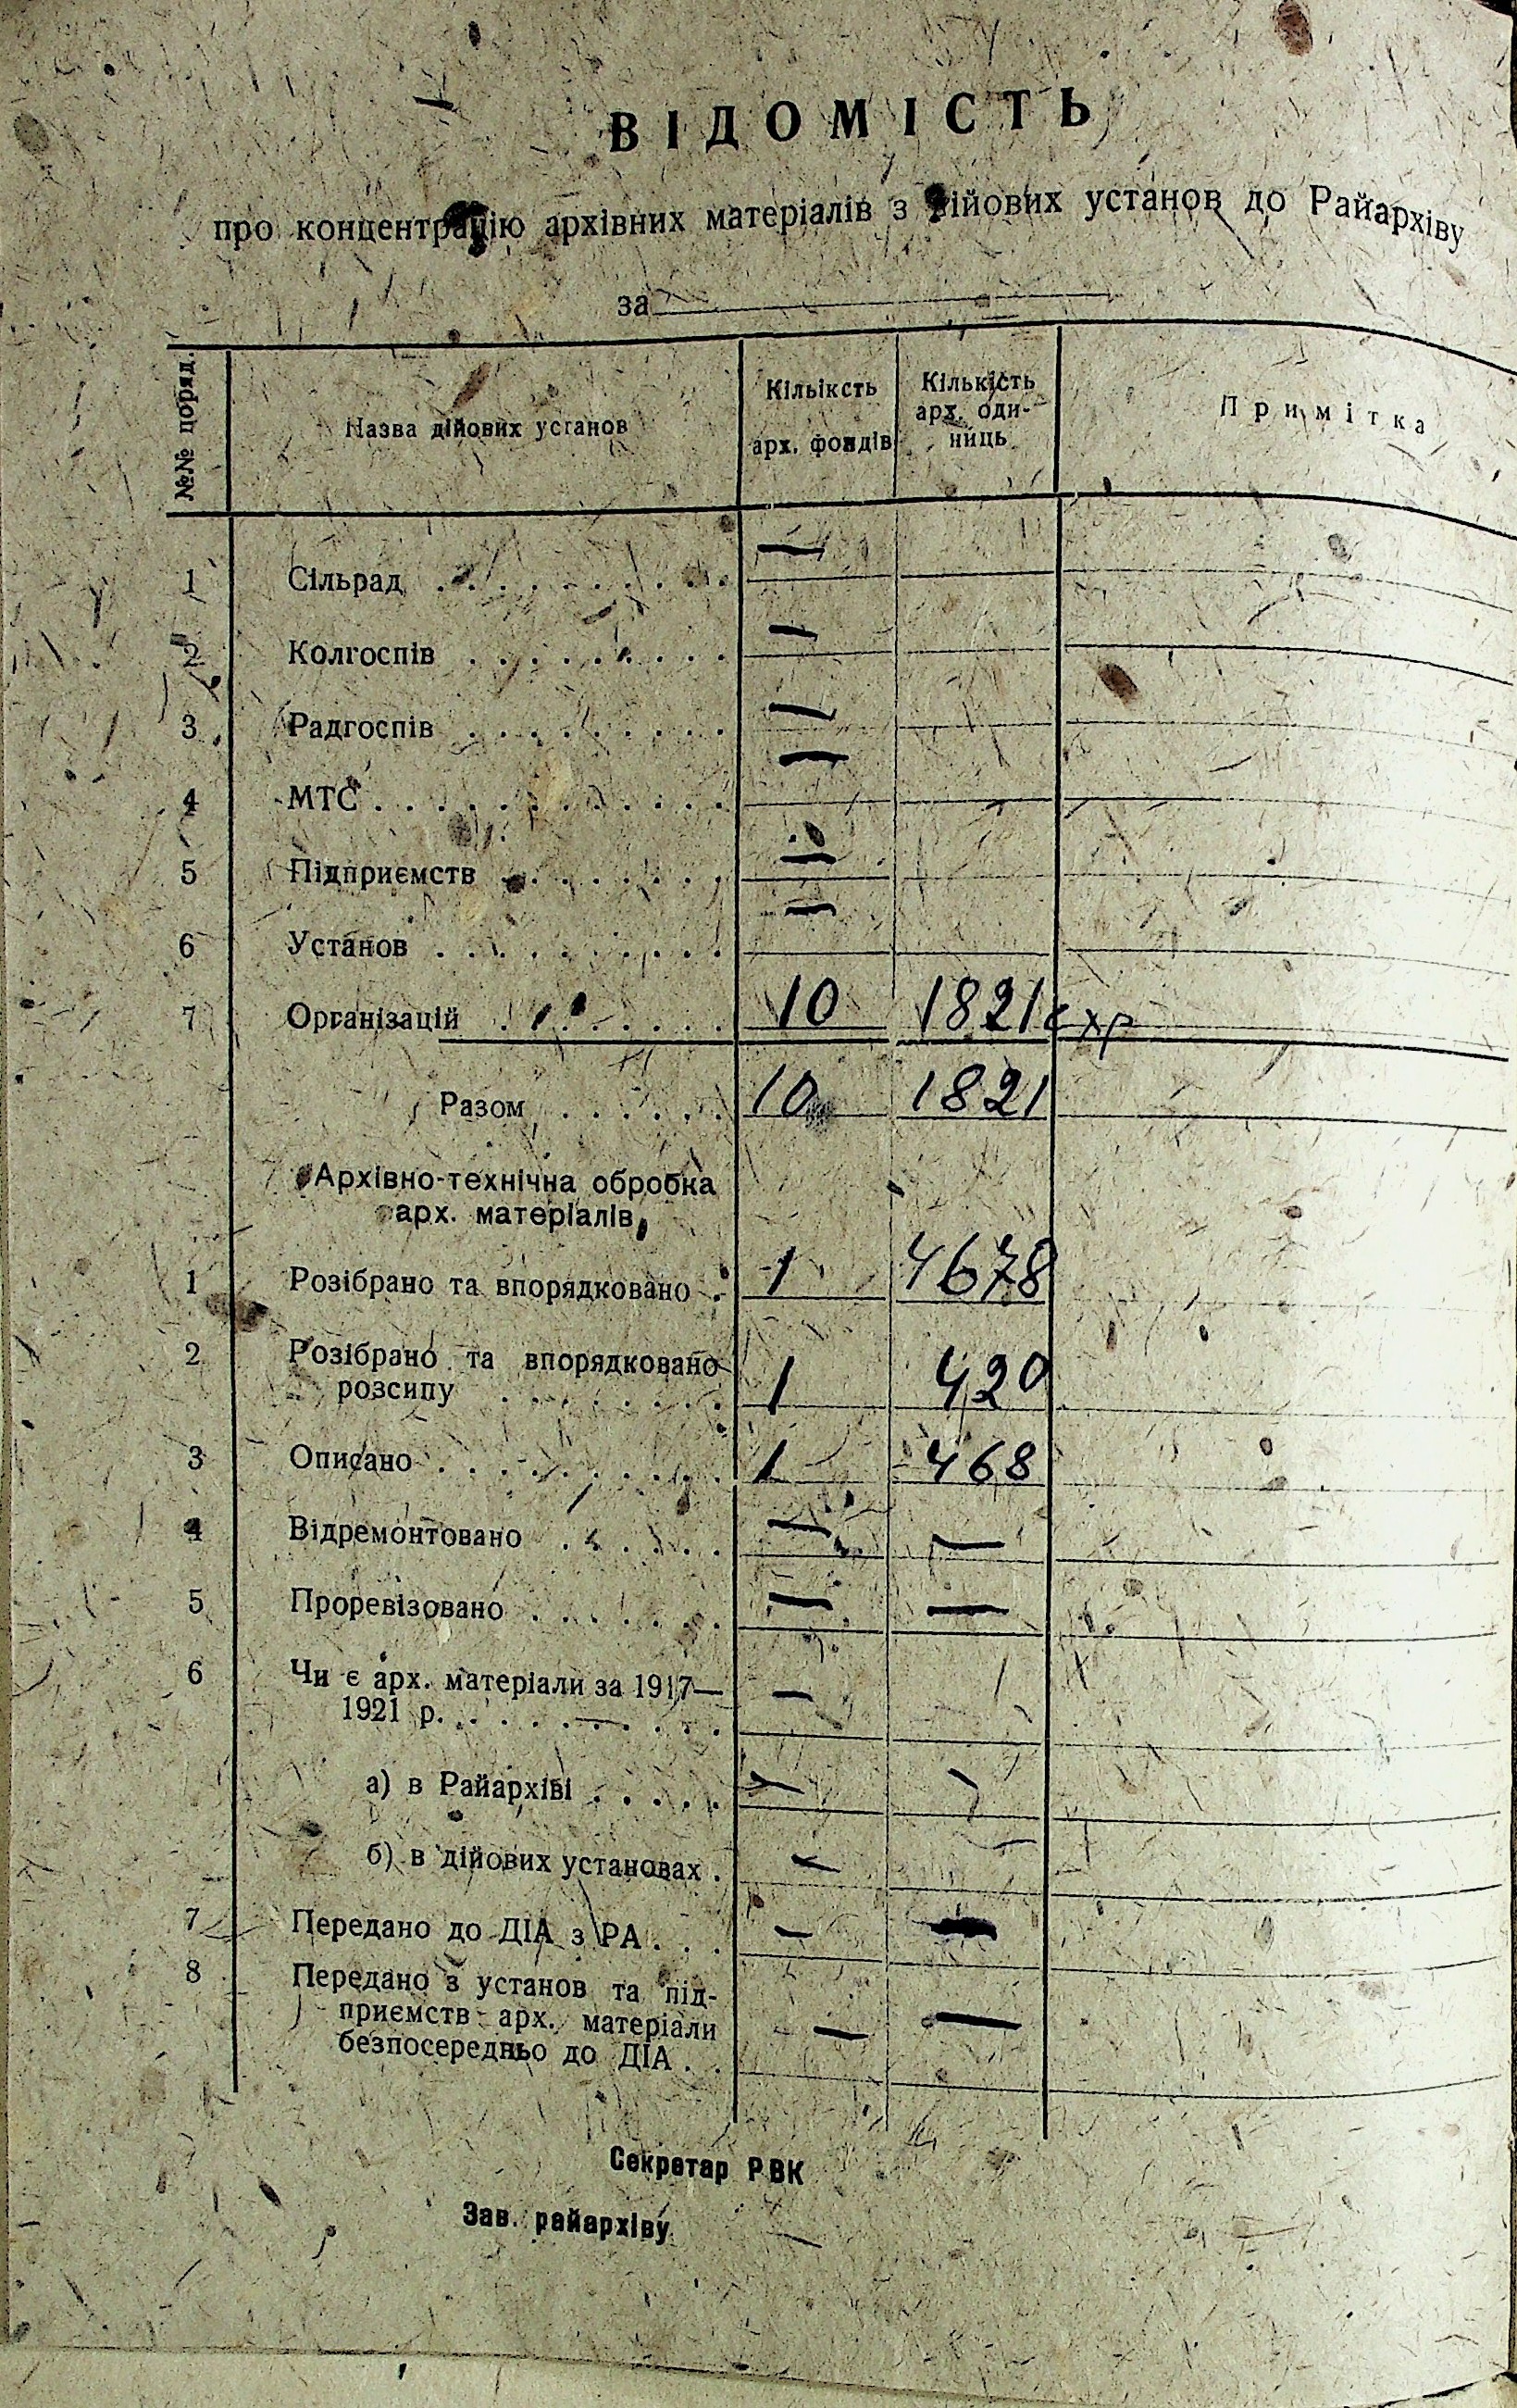 ВІДОМІСТЬ
про концентрацію архівних матеріалів з дійових установ до Райархіву
за
№№ поряд.
Назва дійових установ
Кількість
арх. фондів
Кількість
арх. оди-
ниць
Примітка
1 Сільрад . . . . . . . . . . —
2 Колгоспів . . . . . . . . . —
3 Радгоспів . . . . . . . . . —
4 МТС . . . . . . . . . . . . —
5 Підприємств . . . . . . . . —
6 Установ . . . . . . . . . . —
7 Організацій . . . . . . . . 10 1821 є хр
Разом . . . . . . 10 1821
Архівно-технічна обробка
арх. матеріалів
1 Розібрано та впорядковано . 1 4678
2 Розібрано та впорядковано
розсипу . . . . . . . . 1 420
3 Описано . . . . . . . . . . 1 468
4 Відремонтовано . . . . . . — —
5 Проревізовано . . . . . . . — —
6 Чи є арх. матеріали за 1917—
1921 р. . . . . . . . . . —
а) в Райархіві . . . . . —
б) в дійових установах . —
7 Передано до ДІА з РА . . . — —
8 Передано з установ та під-
приємств арх. матеріали
безпосередньо до ДІА . . — —
Секретар РВК
Зав. райархіву